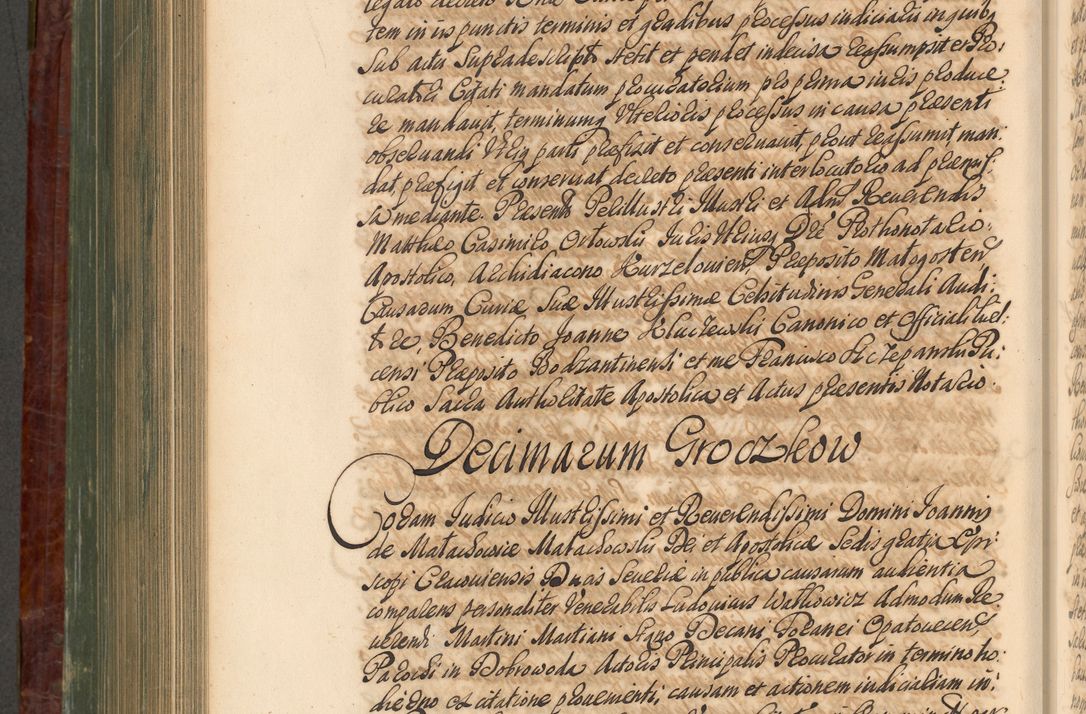 tem in iis punctis terminis et gradibus processus iudiciarii in quibus
sub actu supradescripto stetit et pendet indecisa reassumpsit et Pro:
curatori Citati mandatum procuratorium pro prima iuris produce:
re mandavit, terminumq Ulterioris processus in causa praesenti
observandi Utriq parti praefixit et conservavit, prout reassumit, man:
dat, praefigit et conservat decreto praesenti interlocutorio ad praemis:
sa mediante. Praesentib Perillustri Illustri et Admˢ Reverendis
Mattheo Casimiro Ortowski Iuris Utriusq Dre Prothonotario
Apostolico, Archidiacono Kurzelovien, Praeposito Małogosten
Causarum Curiae Suae Illustrissimae Celsitudinis Generali Audi:
tore, Benedicto Joanne Kluczewski Canonico et Officiali Kiel:
censi Praeposito Bodzantinensi et me Francisco Szczepanski Pu:
blico Sacra Authoritate Apostolica et Actus praesentis Notario.
Decimarum Groczkow
Coram Iudicio Illustrissimi et Reverendissimi Domini Joannis
de Małachowice Małachowski Dei et Apostolicae Sedis gratia Epi:
scopi Cracoviensis Ducis Severiae in publica causarum audientia
comparens personaliter Venerabilis Ludovicus Watkowicz Admodum Re
verendi Martini Martiani Stąpo Decani Foranei Opatovecen,
Parochi in Dobrowoda Actoris Principalis Procurator in termino ho:
dierno ex citatione provenienti, causam et actionem iudiciariam in: